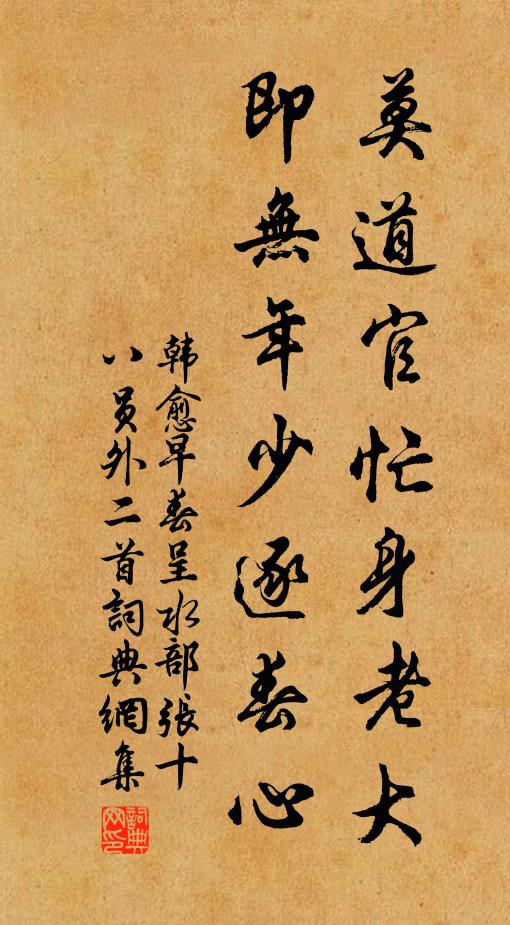 莫道官忙身老大
即無年少逐春心
韓愈早春呈水部張十
八員外二首詞典網集
詞典网印